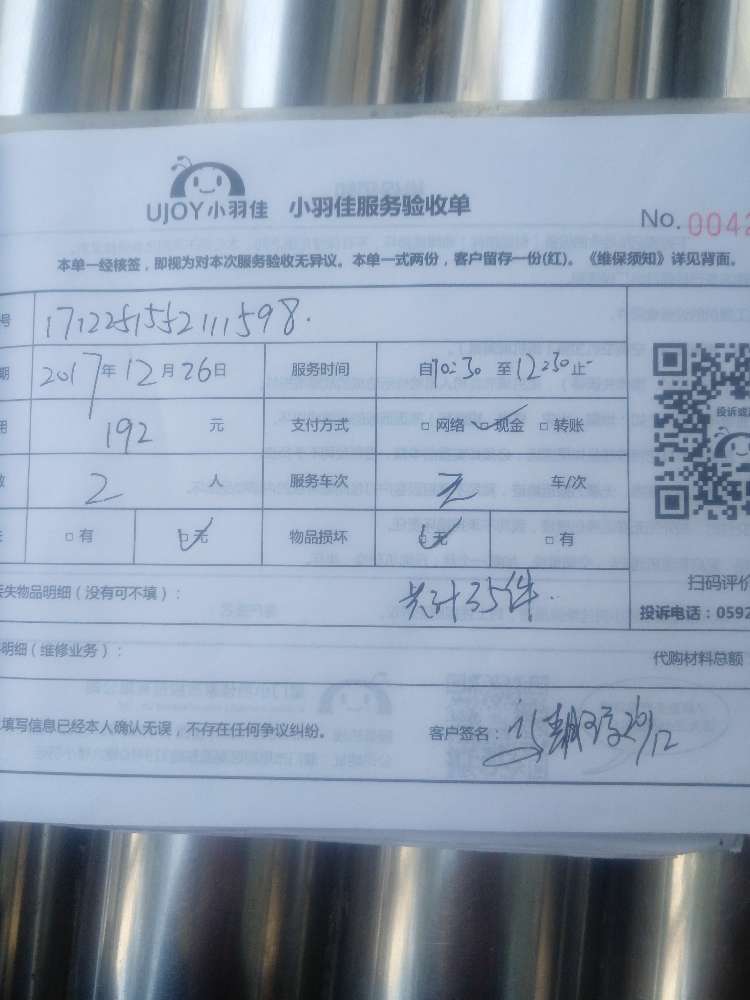 UJOY小羽佳 小羽佳服务验收单
No. 0042
本单一经核签，即视为对本次服务验收无异议。本单一式两份，客户留存一份(红)。《维保须知》详见背面。
号 1712251552111598.
期 2017年12月26日 服务时间 自10:30至12:30止
用 192 元 支付方式 □ 网络 □ 现金 □ 转账
数 2 人 服务车次 无 车/次
□ 有 □ 无 物品损坏 □ 无 □ 有
失物品明细（没有可不填）： 共计35件.
明细（维修业务）： 代购材料总额
填写信息已经本人确认无误，不存在任何争议纠纷。 客户签名：
扫码评价
投诉电话：0592